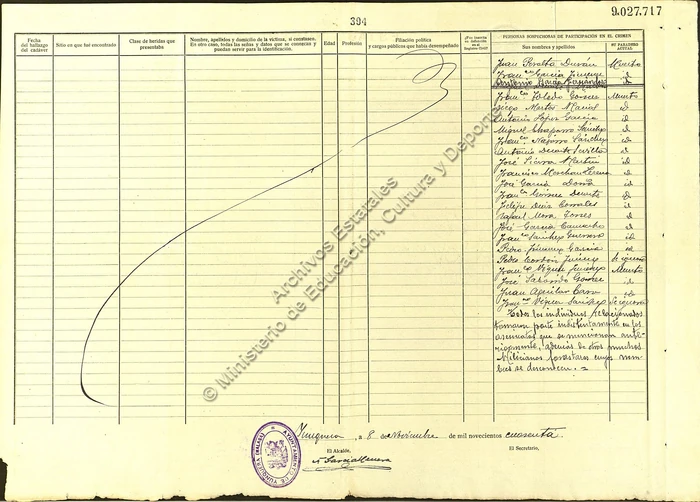 394
9.027.717
Fecha del hallazgo del cadáver
Sitio en que fué encontrado
Clase de heridas que presentaba
Nombre, apellidos y domicilio de la víctima, si constasen.
En otro caso, todas las señas y datos que se conozcan y
puedan servir para la identificación.
Edad
Profesión
Filiación política
y cargos públicos que había desempeñado
PERSONAS SOSPECHOSAS DE PARTICIPACIÓN EN EL CRIMEN
Sus nombres y apellidos
SU PARADERO ACTUAL
Juan Peralta Durán Muerto
Franco García Jiménez id
Franco Toledo Gómez Muerto
Diego Martos Macial id
Antonio López García id
Miguel Chaparro Sánchez id
Franco Najarro Sánchez id
Antonio Duarte Sevilla id
José Sierra Martín id
Francisco Merchan id
José García Doña id
Franco Gómez Duarte id
Felipe Diaz Corrales id
Rafael Mora Torres id
José García Camacho id
Franco Sánchez Guerrero id
Pedro Jiménez García id
Pedro Cordón Jiménez
Juan Jiménez Muerto
José Gómez id
Juan Aguilar Caro id
Franco Sánchez Se ignora
Todos los individuos relacionados
tomaron parte indistintamente en los
asesinatos que se mencionan ante-
riormente, además de otros muchos
Milicianos forasteros cuyos nom-
bres se desconocen.=
Archivos Estatales
© Ministerio de Educación, Cultura y Deporte
Yunquera, a 8 de Noviembre de mil novecientos cuarenta.
El Alcalde,
El Secretario,
AYUNTAMIENTO DE YUNQUERA (MALAGA)